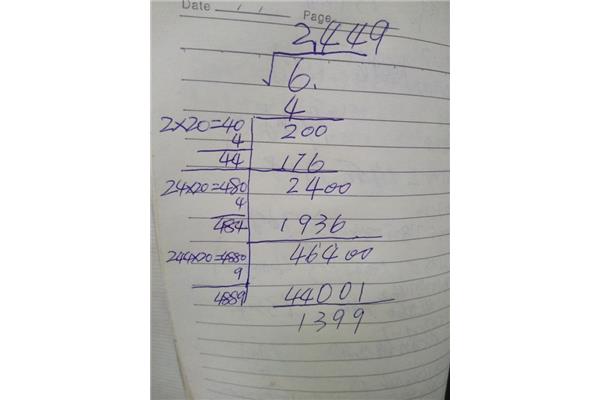 Date / / Page
2.449
√6.
4
2×20=40 200
4
44 176
24×20=480 2400
4
484 1936
244×20=4880 46400
9
4889 44001
1399